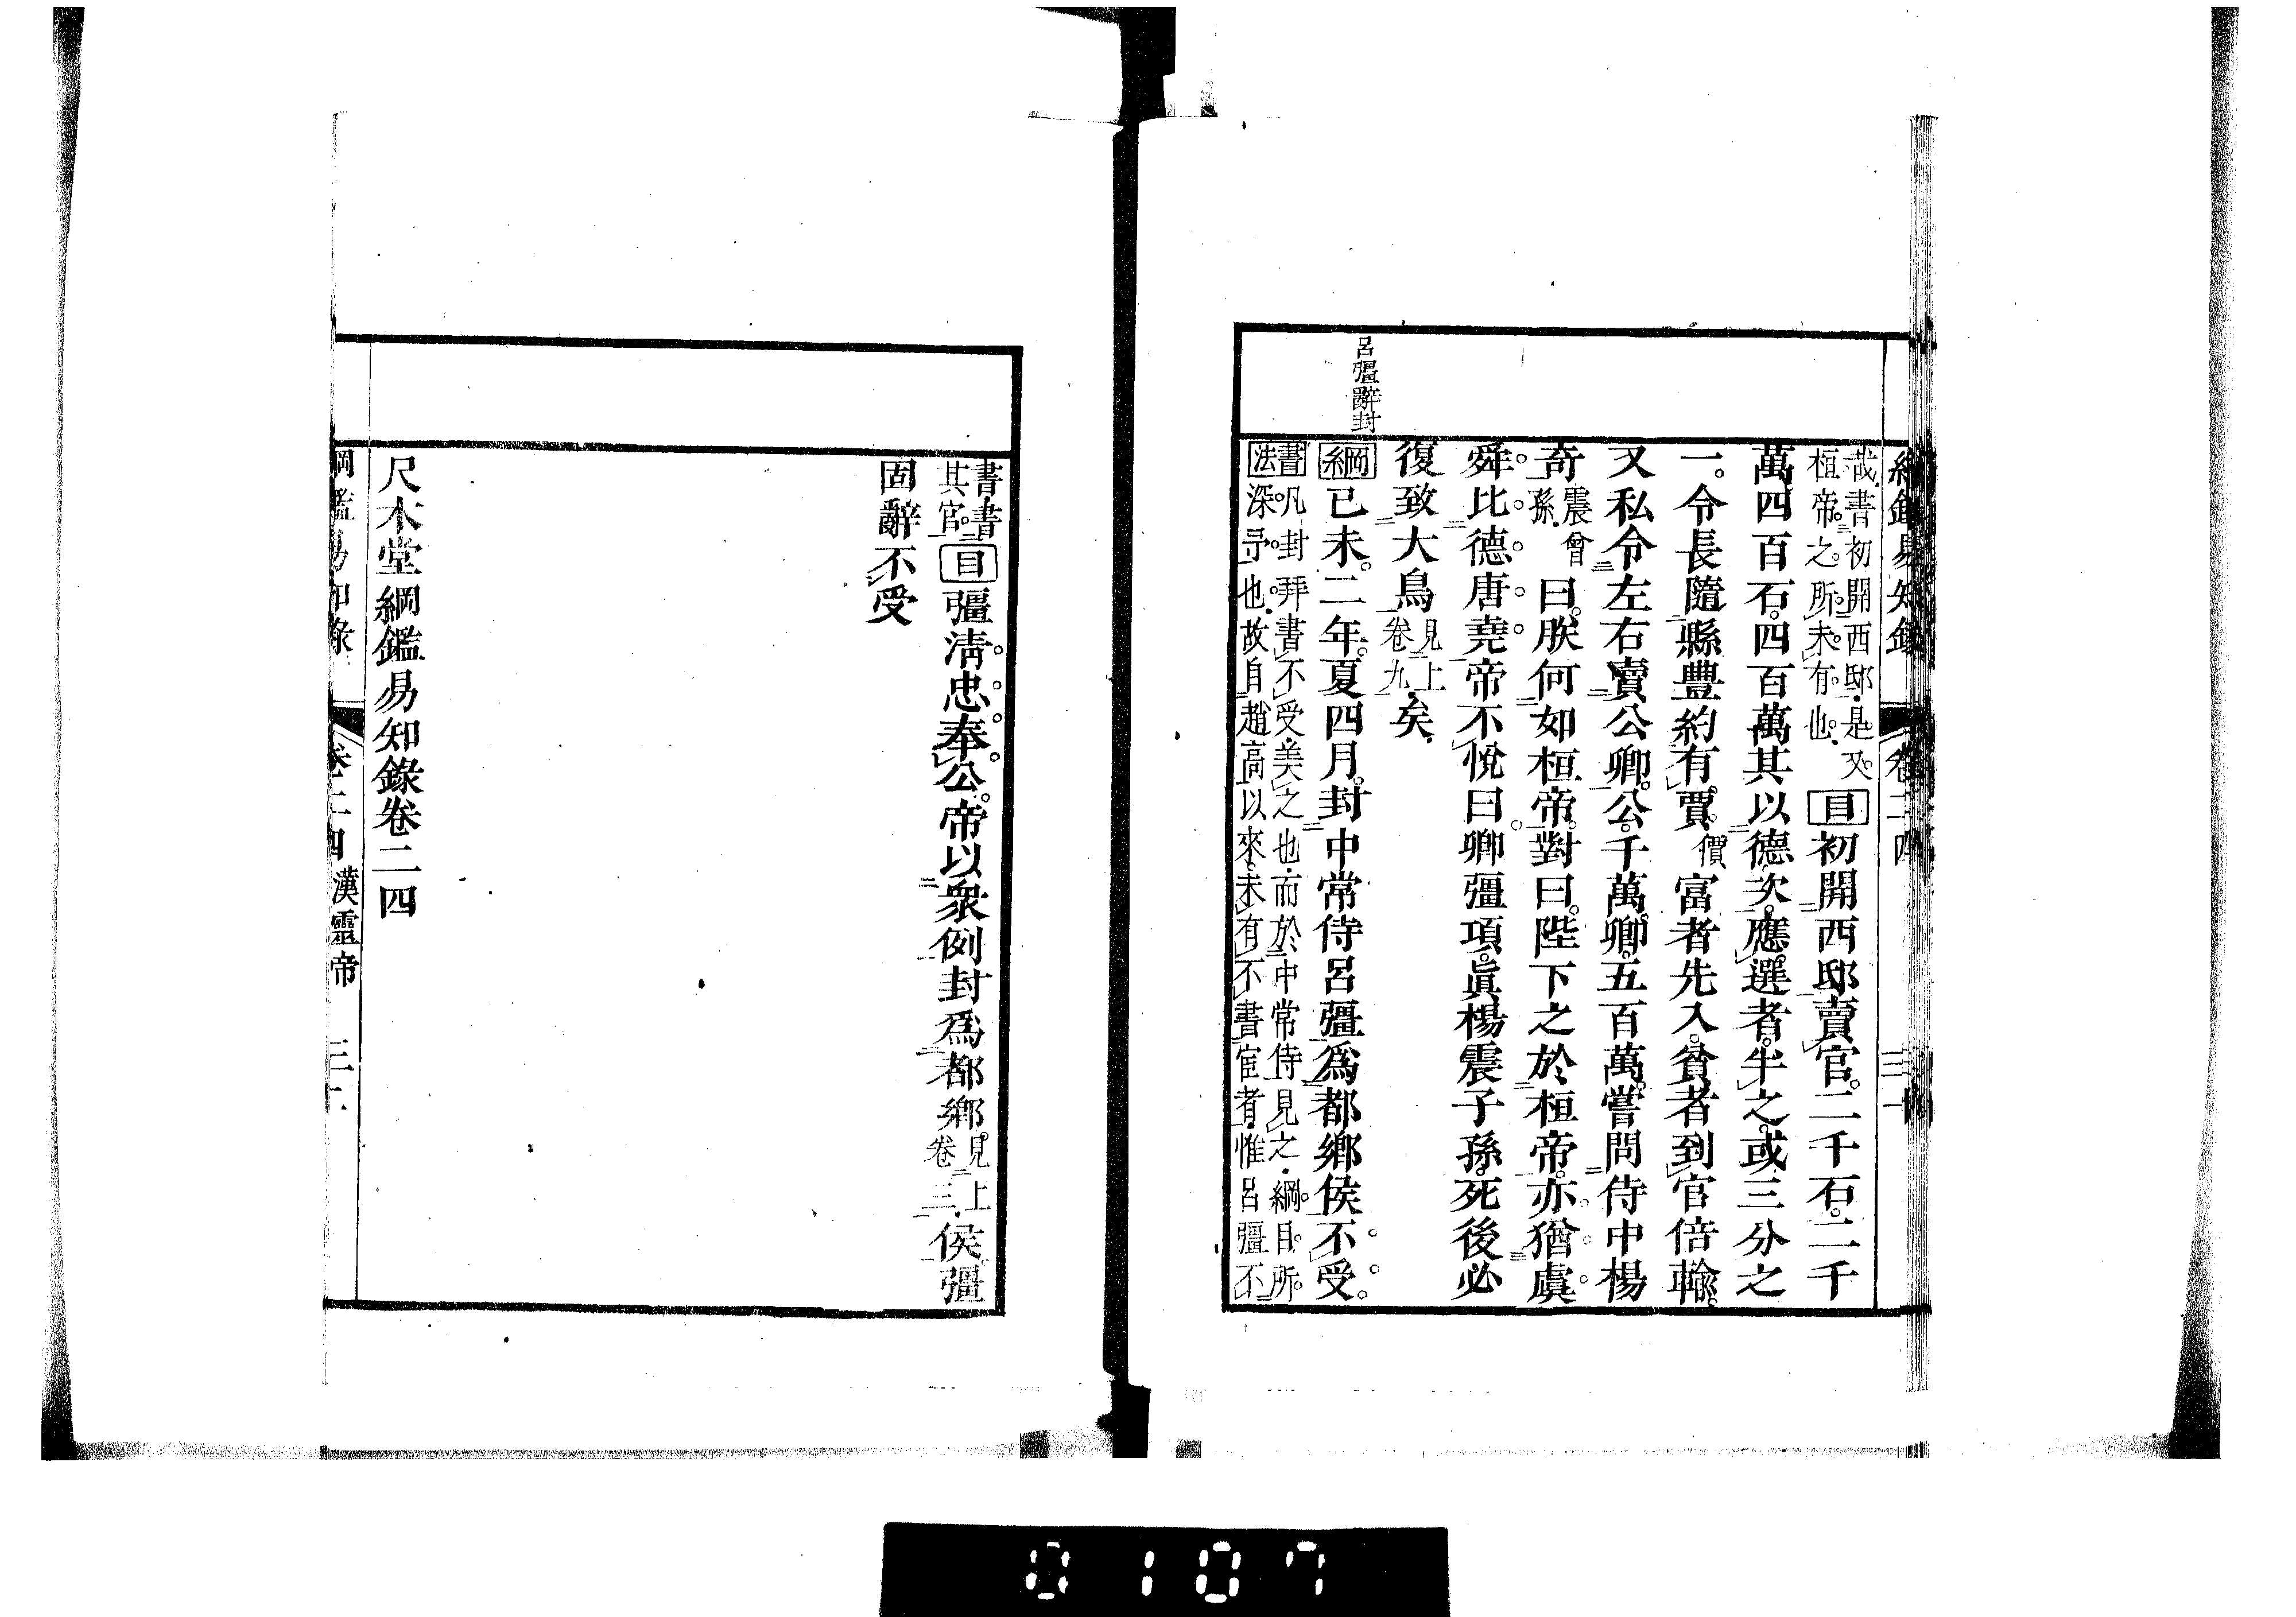 綱鑑易知錄 卷二四
哉書初開西邸是又
桓帝之所未有也
目初開西邸賣官二千石二千
萬四百石四百萬其以德次應選者半之或三分之
一令長隨縣豐約有賈價富者先入貧者到官倍輸
又私令左右賣公卿公千萬卿五百萬嘗問侍中楊
奇震曾孫曰朕何如桓帝對曰陛下之於桓帝亦猶虞
舜比德唐堯帝不悅曰卿彊項眞楊震子孫死後必
復致大鳥見上卷九矣
呂彊辭封
綱己未二年夏四月封中常侍呂彊爲都鄉侯不受
書法凡封拜書不受美之也而於中常侍見之綱目所
深予也故自趙高以來未有不書宦者惟呂彊不
書書其官目彊清忠奉公帝以衆例封爲都鄉見上卷三侯彊
固辭不受
尺木堂綱鑑易知錄卷二四
綱鑑易知錄 卷二四 漢靈帝
0107